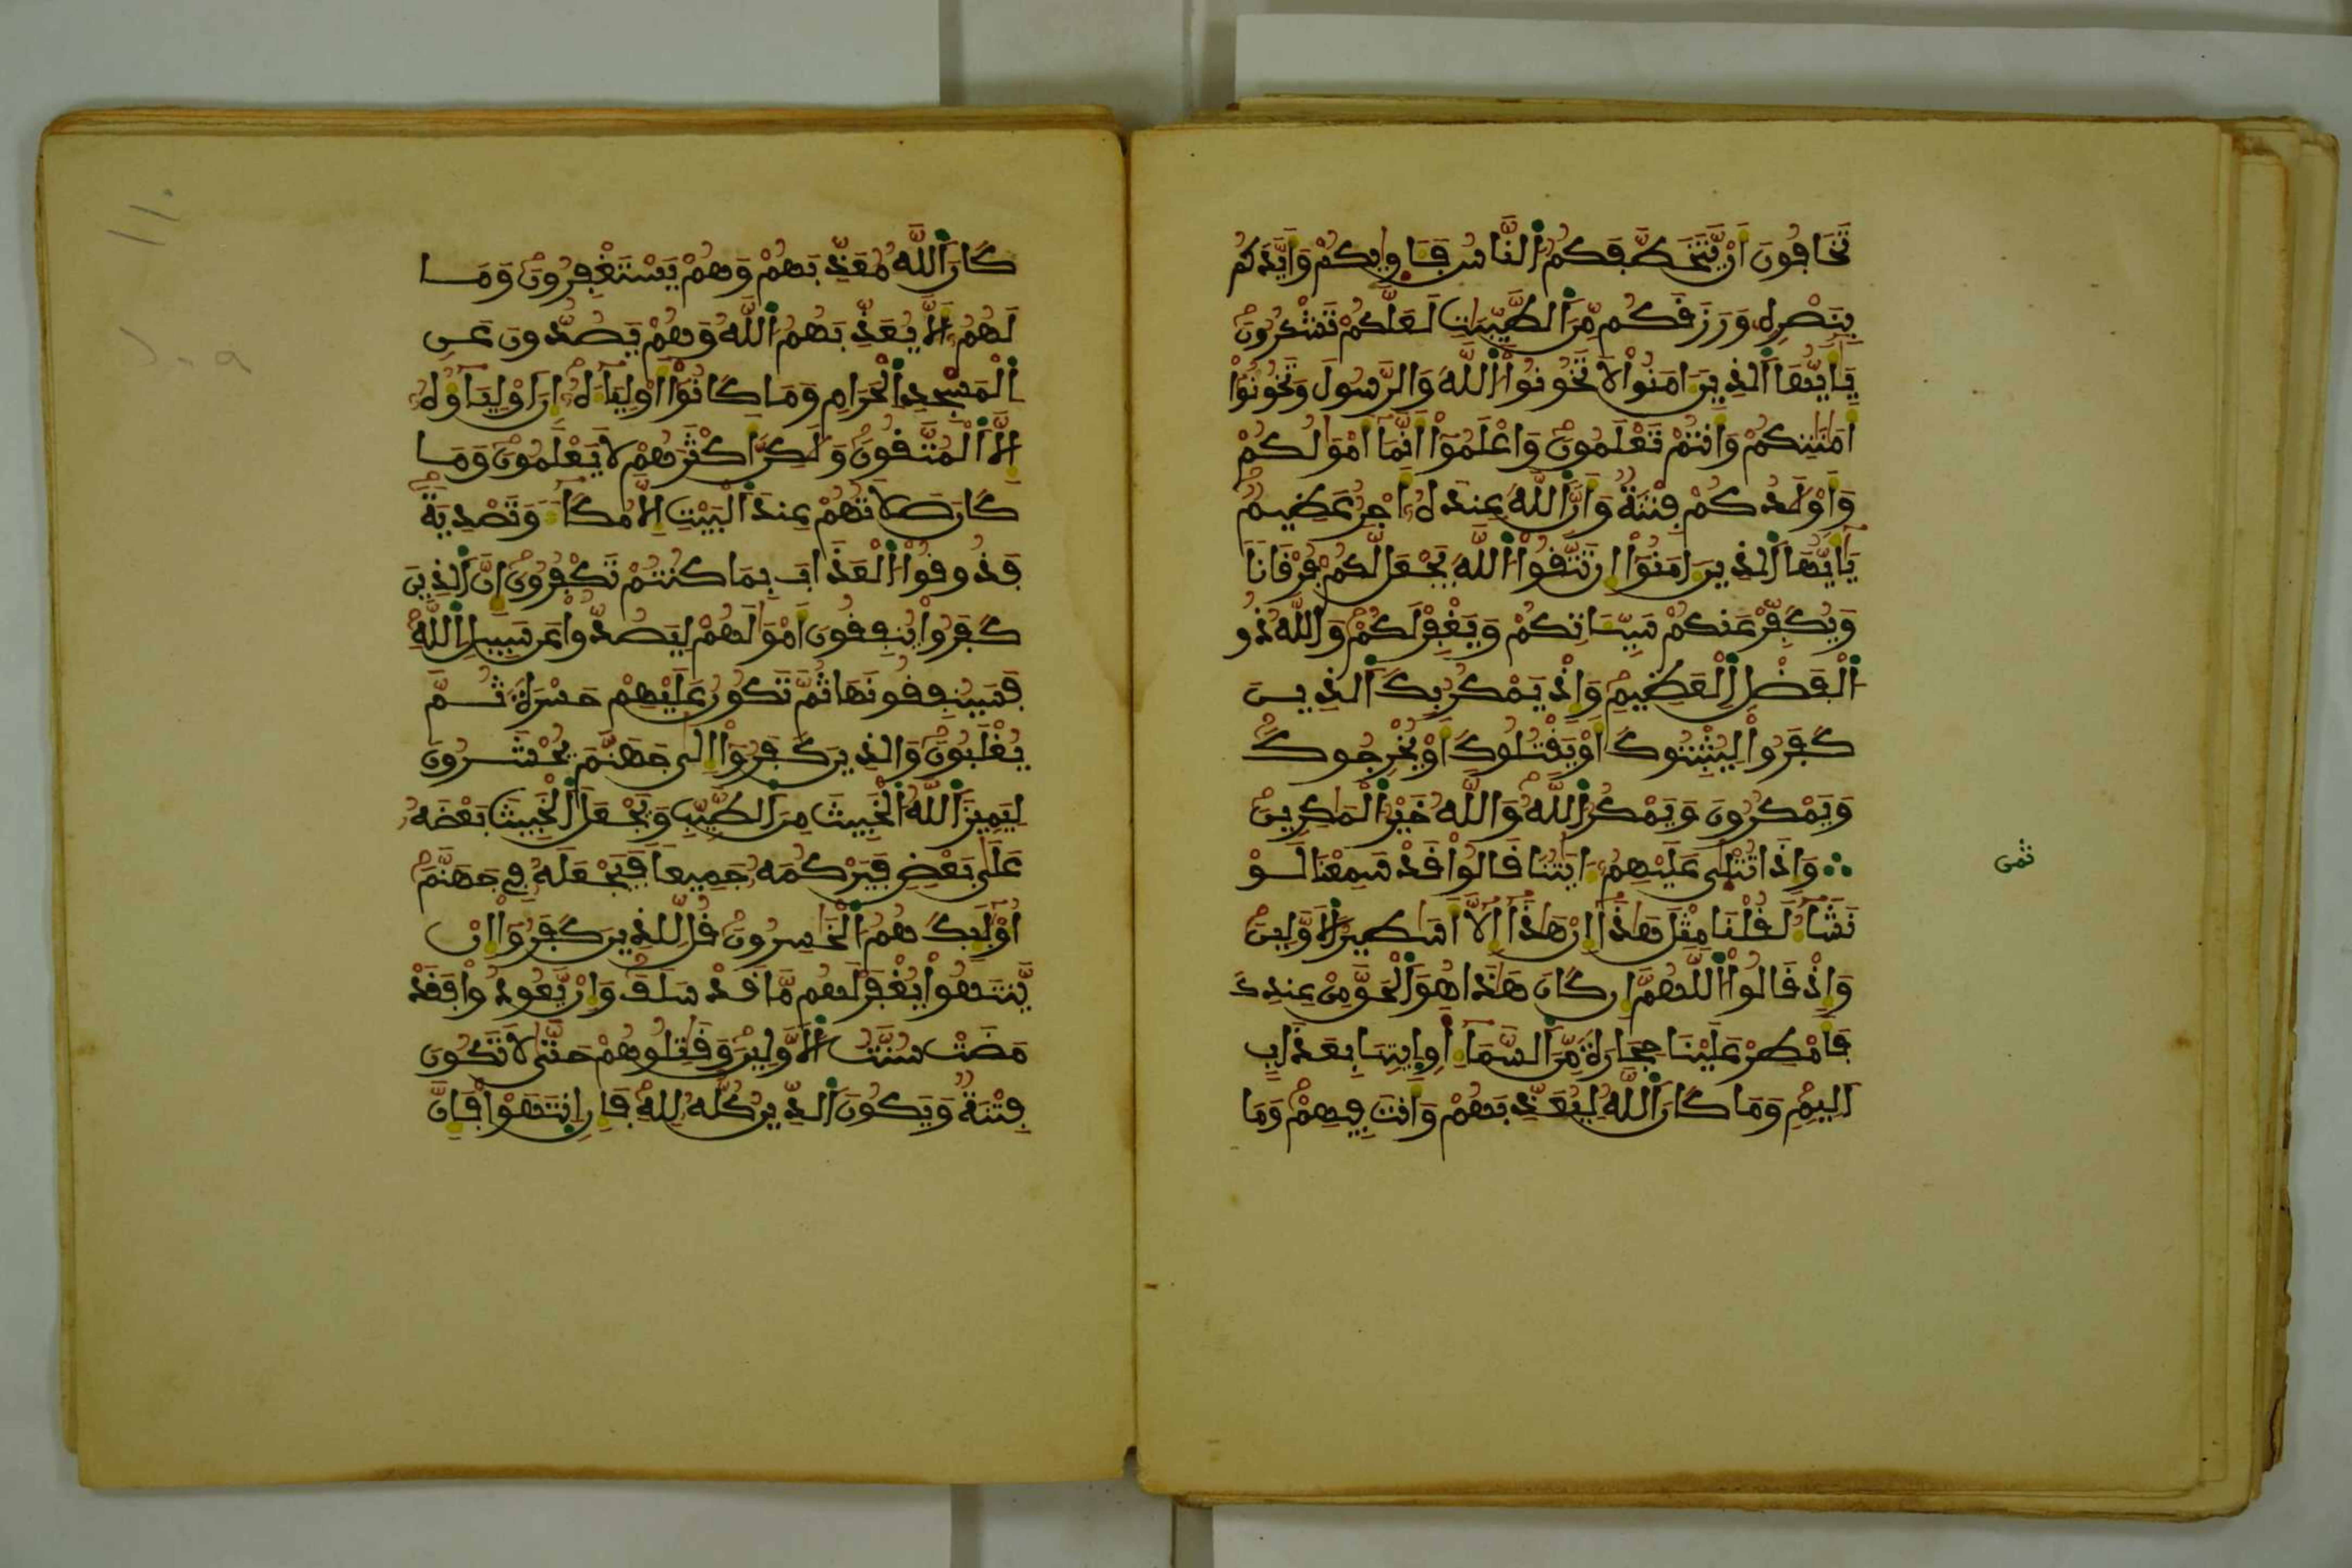 تَخَافُونَ أَنْ يَّتَخَطَّفَكُمُ اُلنَّاسُ فَـَٔاوٜيٰكُمْ وَأَيَّدَكُم
بِنَصْرِهِۦ وَرَزَقَكُم مِّنَ اَلطَّيِّبَٰتِ لَعَلَّكُمْ تَشْكُرُونَ
يَٰٓأَيُّهَا اَلذِينَ ءَامَنُواْ لَا تَخُونُواْ اُللَّهَ وَالرَّسُولَ وَتَخُونُوٓاْ
أَمَٰنَٰتِكُمْ وَأَنتُمْ تَعْلَمُونَ وَاعْلَمُوٓاْ أَنَّمَآ أَمْوَٰلُكُمْ
وَأَوْلَٰدُكُمْ فِتْنَةٌ وَأَنَّ اَللَّهَ عِندَهُۥٓ أَجْرٌ عَظِيمٌ
يَٰٓأَيُّهَا اَلذِينَ ءَامَنُوٓاْ إِن تَتَّقُواْ اُللَّهَ يَجْعَل لَّكُمْ فُرْقَانًا
وَيُكَفِّرْ عَنكُمْ سَيِّـَٔاتِكُمْ وَيَغْفِرْ لَكُمْ وَاللَّهُ ذُو
اُلْفَضْلِ اِلْعَظِيمِ وَإِذْ يَمْكُرُ بِكَ اَلذِينَ
كَفَرُواْ لِيُثْبِتُوكَ أَوْ يَقْتُلُوكَ أَوْ يُخْرِجُوكَ
وَيَمْكُرُونَ وَيَمْكُرُ اُللَّهُ وَاللَّهُ خَيْرُ اُلْمَٰكِرِينَ
ثمن
وَإِذَا تُتْلٜيٰ عَلَيْهِمُۥٓ ءَايَٰتُنَا قَالُواْ قَدْ سَمِعْنَا لَوْ
نَشَآءُ لَقُلْنَا مِثْلَ هَٰذَآ إِنْ هَٰذَآ إِلَّآ أَسَٰطِيرُ اُلَاوَّلِينَ
وَإِذْ قَالُواْ اُللَّهُمَّ إِن كَانَ هَٰذَا هُوَ اَلْحَقَّ مِنْ عِندِكَ
فَأَمْطِرْ عَلَيْنَا حِجَارَةً مِّنَ اَلسَّمَآءِ اَوِ اِيتِنَا بِعَذَابٍ
اَلِيمٍ وَمَا كَانَ اَللَّهُ لِيُعَذِّبَهُمْ وَأَنتَ فِيهِمْ وَمَا
١١٠
كَانَ اَللَّهُ مُعَذِّبَهُمْ وَهُمْ يَسْتَغْفِرُونَ وَمَا
لَهُمُۥٓ أَلَّا يُعَذِّبَهُمُ اُللَّهُ وَهُمْ يَصُدُّونَ عَنِ
اِلْمَسْجِدِ اِلْحَرَامِ وَمَا كَانُوٓاْ أَوْلِيَآءَهُۥٓ إِنَ اَوْلِيَآؤُهُۥٓ
إِلَّا اَلْمُتَّقُونَ وَلَٰكِنَّ أَكْثَرَهُمْ لَا يَعْلَمُونَ وَمَا
كَانَ صَلَاتُهُمْ عِندَ اَلْبَيْتِ إِلَّا مُكَآءً وَتَصْدِيَةً
فَذُوقُواْ اُلْعَذَابَ بِمَا كُنتُمْ تَكْفُرُونَ إِنَّ اَلذِينَ
كَفَرُواْ يُنفِقُونَ أَمْوَٰلَهُمْ لِيَصُدُّواْ عَن سَبِيلِ اِللَّهِ
فَسَيُنفِقُونَهَا ثُمَّ تَكُونُ عَلَيْهِمْ حَسْرَةً ثُمَّ
يُغْلَبُونَ وَالذِينَ كَفَرُوٓاْ إِلَىٰ جَهَنَّمَ يُحْشَرُونَ
لِيَمِيزَ اَللَّهُ اُلْخَبِيثَ مِنَ اَلطَّيِّبِ وَيَجْعَلَ اَلْخَبِيثَ بَعْضَهُۥ
عَلَىٰ بَعْضٍ فَيَرْكُمَهُۥ جَمِيعًا فَيَجْعَلَهُۥ فِي جَهَنَّمَ
أُوْلَٰٓئِكَ هُمُ اُلْخَٰسِرُونَ قُل لِّلذِينَ كَفَرُوٓاْ إِنْ
يَّنتَهُواْ يُغْفَرْ لَهُم مَّا قَدْ سَلَفَ وَإِنْ يَّعُودُواْ فَقَدْ
مَضَتْ سُنَّتُ اُلَاوَّلِينَ وَقَٰتِلُوهُمْ حَتَّىٰ لَا تَكُونَ
فِتْنَةٌ وَيَكُونَ اَلدِّينُ كُلُّهُۥ لِلهِ فَإِنِ اِنتَهَوْاْ فَإِنَّ